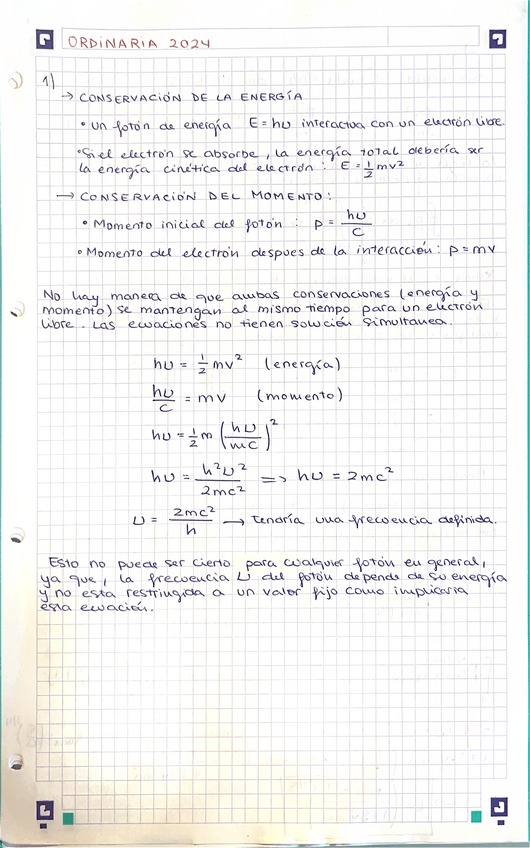 ORDINARIA 2024
1)
→ CONSERVACIÓN DE LA ENERGÍA
• Un fotón de energía E = hυ interactua con un electrón libre.
• Si el electrón se absorbe, la energía total debería ser
la energía cinética del electrón: E = 1/2 mv²
→ CONSERVACIÓN DEL MOMENTO:
• Momento inicial del fotón: p = hυ/c
• Momento del electron despues de la interacción: p = mv
No hay manera de que ambas conservaciones (energía y
momento) se mantengan al mismo tiempo para un electrón
libre. Las ecuaciones no tienen solución simultanea.
hυ = 1/2 mv² (energía)
hυ/c = mv (momento)
hυ = 1/2 m (hυ/mc)²
hυ = h²υ²/2mc² => hυ = 2mc²
υ = 2mc²/h → tendría una frecuencia definida.
Esto no puede ser cierto para cualquier fotón en general,
ya que, la frecuencia υ del fotón depende de su energía
y no esta restringida a un valor fijo como implicaria
esta ecuación.